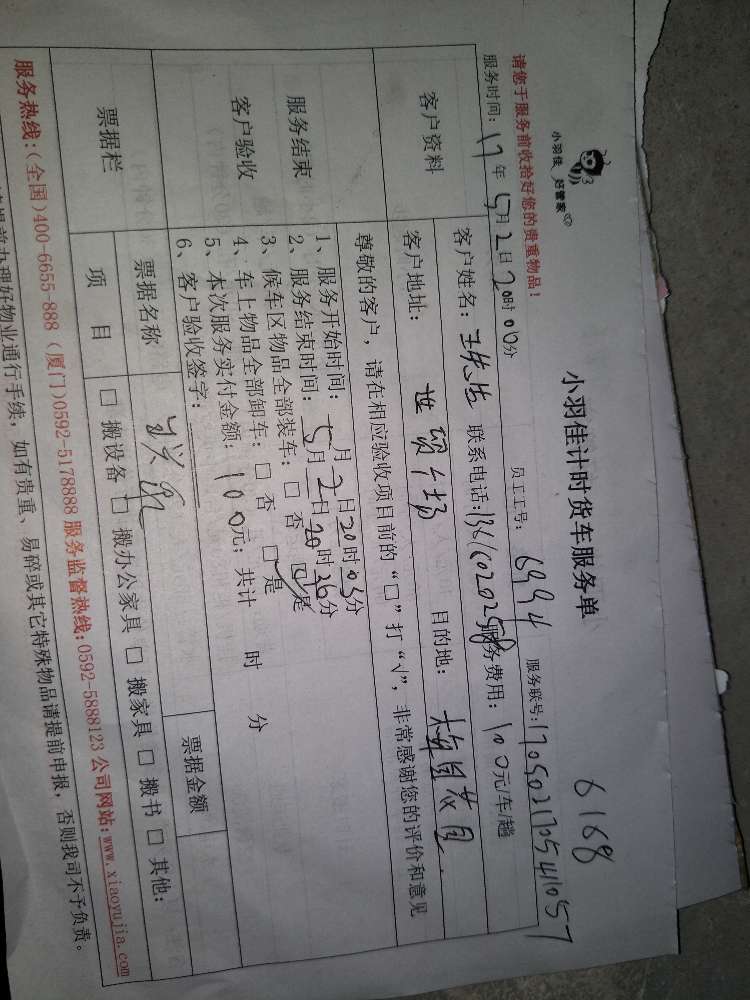 小羽佳 好管家
小羽佳计时货车服务单
6168
请您于服务前收拾好您的贵重物品!
员工工号: 6994 服务联号:
服务时间: 17年5月2日20时00分
客户资料
客户姓名: 联系电话: 服务费用: 100元/车/趟
客户地址: 目的地:
尊敬的客户,请在相应验收项目前的“□”打“√”,非常感谢您的评价和意见
服务结束
客户验收
1、服务开始时间: 5月2日20时05分
2、服务结束时间: 5月2日20时36分
3、候车区物品全部装车: □ 否 ☑是
4、车上物品全部卸车: □ 否 ☑是
5、本次服务实付金额: 100元; 共计 时 分
6、客户验收签字:
票据栏
票据名称 票据金额
项 目 □ 搬设备 □ 搬办公家具 □ 搬家具 □ 搬书 □ 其他:
服务热线:(全国)400-6655-888 (厦门)0592-5178888 服务监督热线:0592-5888123 公司网站:www.xiaoyujia.com
提前办理好物业通行手续,如有贵重、易碎或其它特殊物品请提前申报,否则我司不予负责。